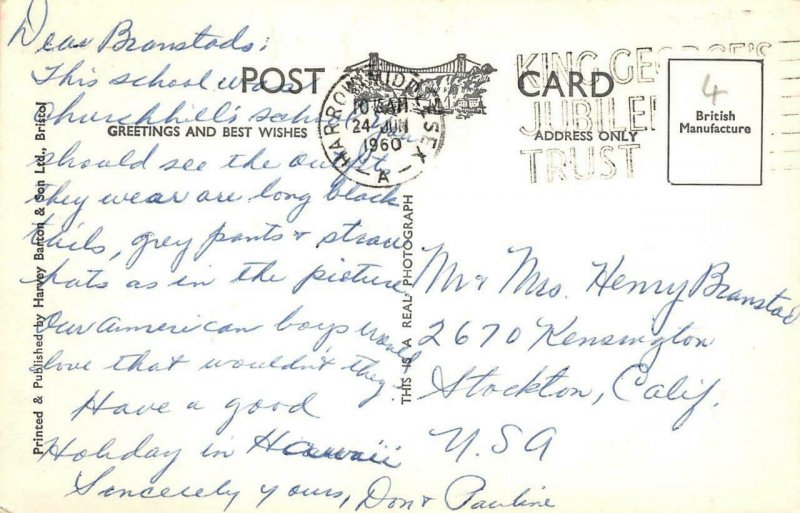 Dear Branstads:
This school was
Churchhill's school. You
should see the outfit
they wear are long black
tails, grey pants & straw
hats as in the picture
Our American boys would
love that wouldn't they?
Have a good
Holiday in Hawaii
Sincerely yours, Don & Pauline
POST CARD
GREETINGS AND BEST WISHES
ADDRESS ONLY
HARROW MIDDLESEX
24 JUN
1960
A
KING GEORGE'S
JUBILEE
TRUST
4
British
Manufacture
Mr & Mrs. Henry Branstad
2670 Kensington
Stockton, Calif.
U.S.A
Printed & Published by Harvey Barton & Son Ltd., Bristol
THIS IS A REAL PHOTOGRAPH